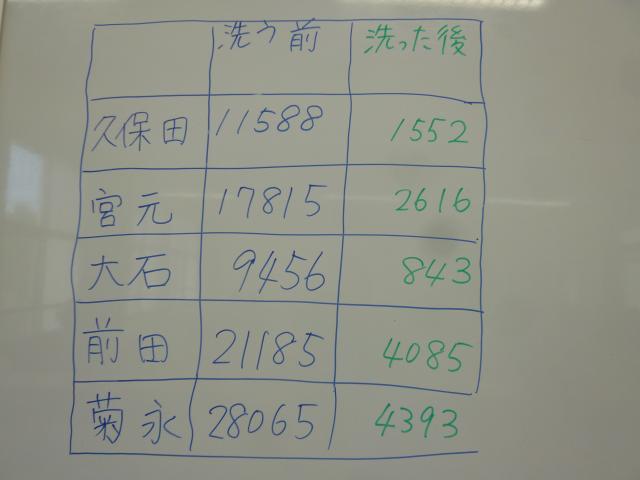 洗う前 洗った後
久保田 11588 1552
宮元 17815 2616
大石 9456 843
前田 21185 4085
菊永 28065 4393